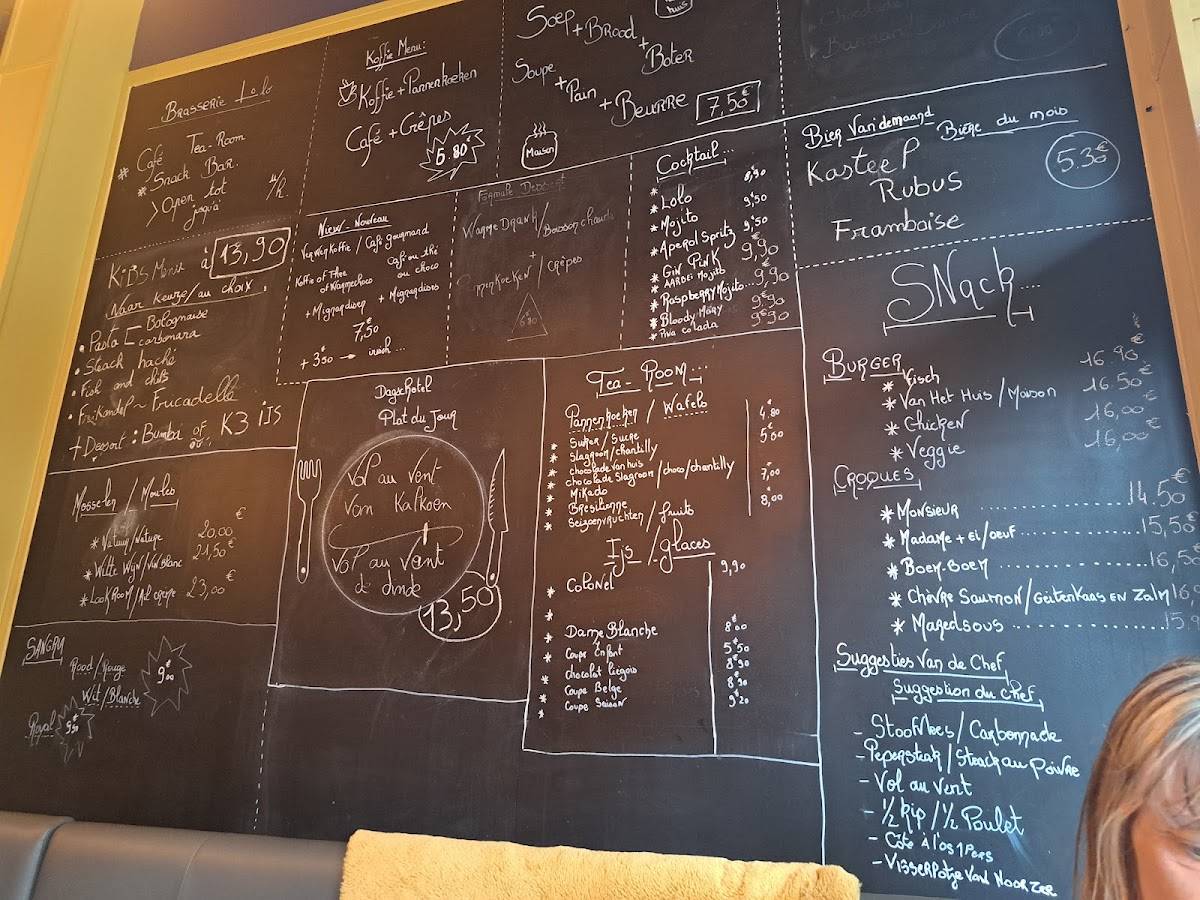 Brasserie Lolo
* Café Tea-Room
* Snack Bar.
> Open tot
jusqu'à
Koffie Menu:
Koffie + Pannenkoeken
Café + Crêpes
5.80
Soep + Brood + Boter
huis
Soupe + Pain + Beurre
7,50€
Maison
Bier van de maand
Bière du mois
Kasteel
Rubus
Framboise
5.30€
KiDS Menu à 13,90
Naar keuze/au choix.
• Pasta Bolognaise
carbonara
• Steack haché
• Fish and chips
• Frikandel ~ Frucadelle
+ Dessert: Bumba of K3 ijs
ou
Nieuw - Nouveau
Verwenkoffie / Café gourmand
Koffie of Thee
of Warmechoco
Café ou thé
ou choco
+ Mignardisen + Mignardises
7,50
+ 3,50 → irish ...
Formule Dessert
Warme Drank / Boisson chaude
+
Pannenkoeken / crêpes
6.80
Cocktail...
* Lolo 8,90
* Mojito 9,50
* Aperol Spritz 9,50
* Gin Pink 9,90
* Aardei Mojito
* Raspberry Mojito... 9,90
* Bloody Mary 9.90
* Pina colada 9.90
Mosselen / Moules
* Natuur/Nature 20,00€
* Witte Wijn/Vin Blanc 21,50€
* Look Room/Ail creme 23,00€
SANGRIA
Rood/Rouge
Wit/Blanche
9€00
Royal 9,50
Dagschotel
Plat du Jour
Vol au Vent
Van Kalkoen
Vol au Vent
de dinde
13,50
Tea-Room...
Pannenkoeken / Wafels
* Suiker / Sucre 4,80
* Slagroom/chantilly 5,00
* chocolade van huis
* chocolade Slagroom/choco/chantilly
* Mikado 7,00
* Bresilienne
* Seizoenvruchten / fruits 8,00
Ijs / glaces
* Colonel 9,90
* Dame Blanche 8,00
* Coupe Enfant 5,50
* chocolat liégois 8,90
* Coupe Belge 8,90
* Coupe Saison 9,20
SNack...
Burger
* Fisch 16.90€
* Van Het Huis / Maison 16.50€
* Chicken 16,00€
* Veggie 16,00€
Croques
* Monsieur ........ 14,50€
* Madame + ei/oeuf ........ 15,50€
* Boem-Boem ........ 16,5
* Chèvre Saumon/Geitenkaas en Zalm 16,
* Maredsous ........ 15,
Suggesties Van de Chef
Suggestion du chef
- Stoofvlees / Carbonnade
- Pepersteak / Steack au poivre
- Vol au Vent
- 1/2 kip / 1/2 Poulet
- Côte à l'os 1 Pers
- Visserpotje Vand Noorzee